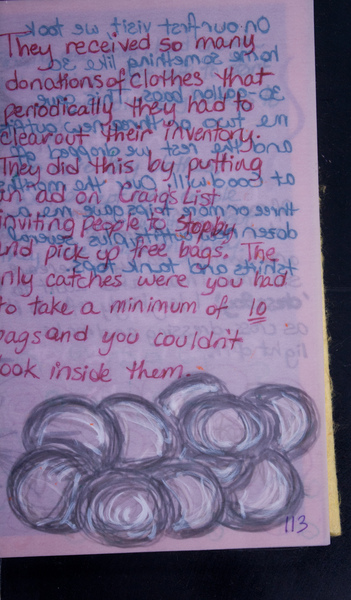 They received so many
donations of clothes that
periodically they had to
clear out their inventory.
They did this by putting
an ad on Craig's List
inviting people to stop by
and pick up free bags. The
nly catches were you had
to take a minimum of 10
bags and you couldn't
ook inside them.
113